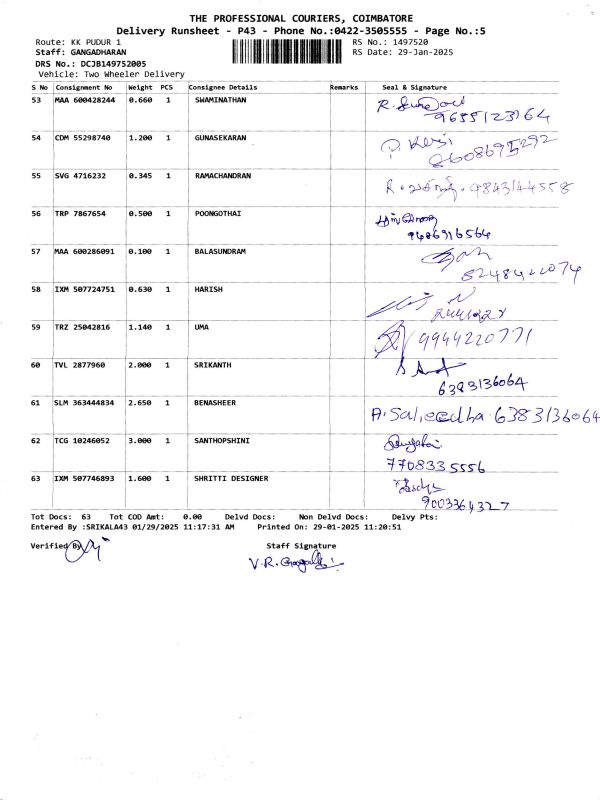 THE PROFESSIONAL COURIERS, COIMBATORE
Delivery Runsheet - P43 - Phone No.:0422-3505555 - Page No.:5
Route: KK PUDUR 1 RS No.: 1497520
Staff: GANGADHARAN RS Date: 29-Jan-2025
DRS No.: DCJB149752005
Vehicle: Two Wheeler Delivery
S No Consignment No Weight PCS Consignee Details Remarks Seal & Signature
53 MAA 600428244 0.660 1 SWAMINATHAN
9655123164
54 CDM 55298740 1.200 1 GUNASEKARAN
8608695292
55 SVG 4716232 0.345 1 RAMACHANDRAN 9843144558
56 TRP 7867654 0.500 1 POONGOTHAI
9486916564
57 MAA 600286091 0.100 1 BALASUNDRAM
58 IXM 507724751 0.630 1 HARISH
59 TRZ 25042816 1.140 1 UMA 9944220771
60 TVL 2877960 2.000 1 SRIKANTH
6383136064
61 SLM 363444834 2.650 1 BENASHEER A. Saleedha 6383136064
62 TCG 10246052 3.000 1 SANTHOPSHINI
7708335556
63 IXM 507746893 1.600 1 SHRITTI DESIGNER
9003364327
Tot Docs: 63 Tot COD Amt: 0.00 Delvd Docs: Non Delvd Docs: Delvy Pts:
Entered By :SRIKALA43 01/29/2025 11:17:31 AM Printed On: 29-01-2025 11:20:51
Verified By Staff Signature